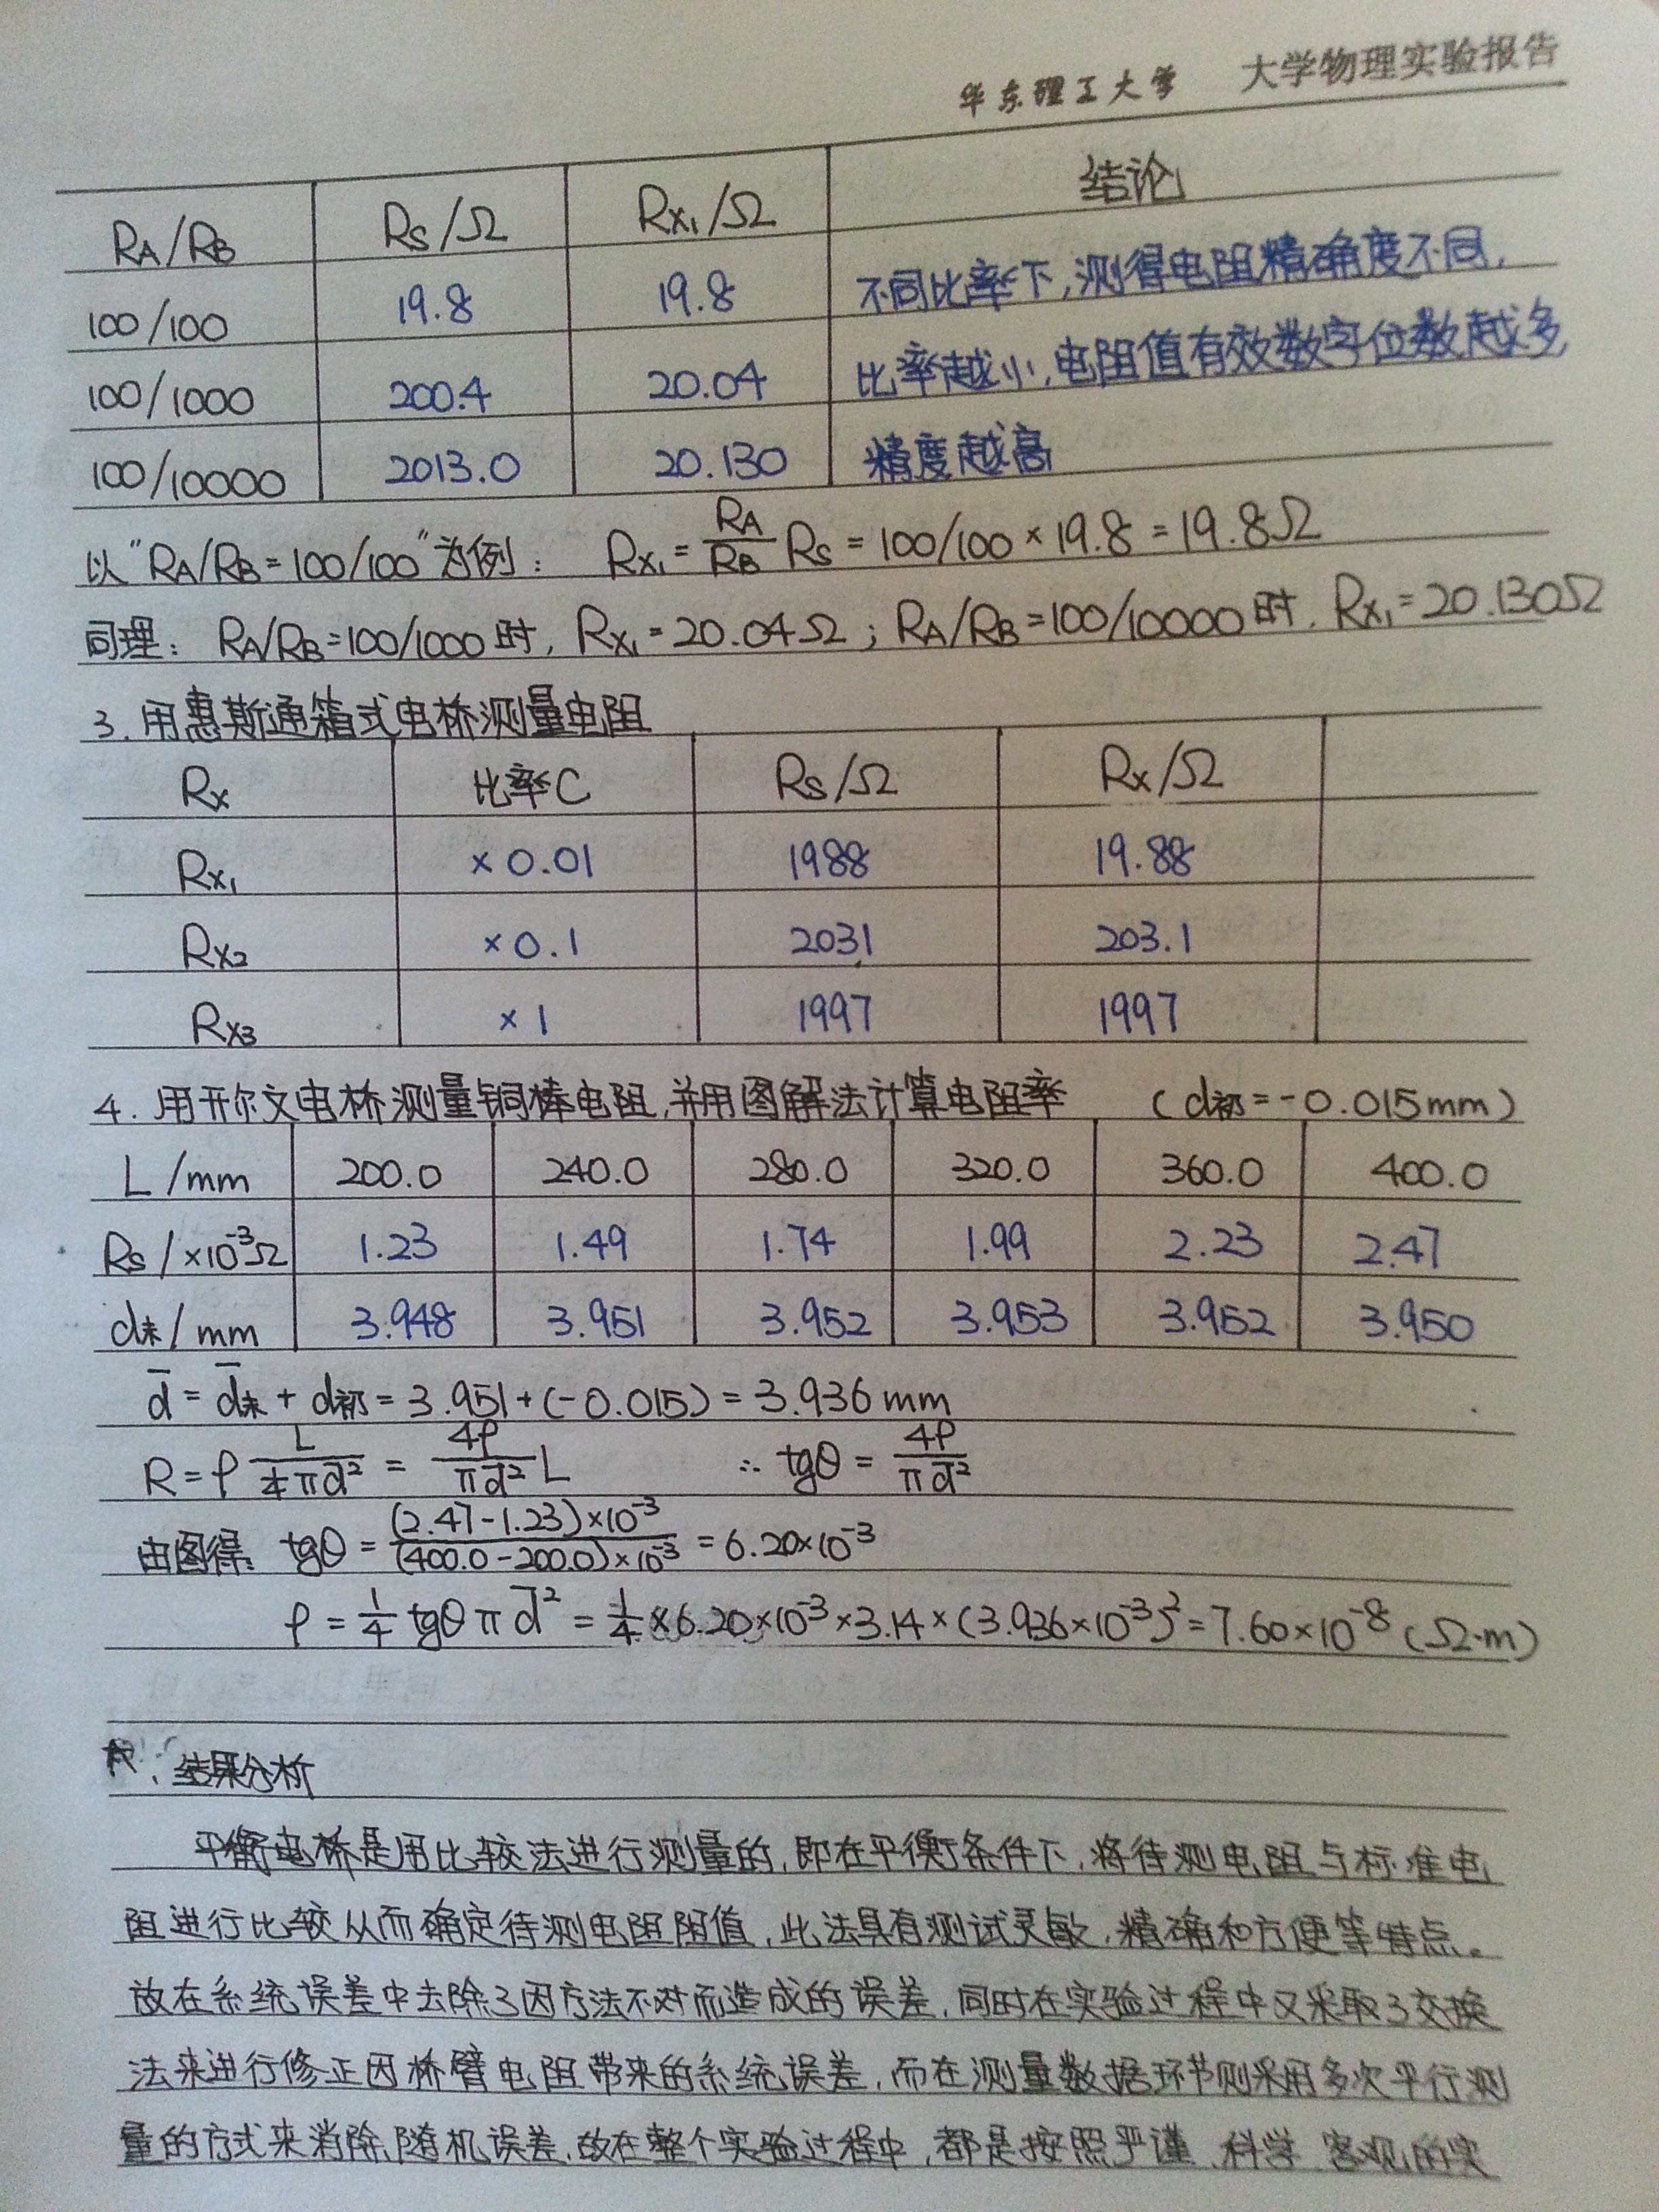 华东理工大学 大学物理实验报告
RA/RB Rs/Ω Rx₁/Ω 结论
100/100 19.8 19.8 不同比率下,测得电阻精确度不同,
100/1000 200.4 20.04 比率越小,电阻值有效数字位数越多
100/10000 2013.0 20.130 精度越高
以"RA/RB=100/100"为例: Rx₁=RA/RB Rs=100/100×19.8=19.8Ω
同理: RA/RB=100/1000时, Rx₁=20.04Ω; RA/RB=100/10000时, Rx₁=20.130Ω
3. 用惠斯通箱式电桥测量电阻
Rx 比率C Rs/Ω Rx/Ω
Rx₁ ×0.01 1988 19.88
Rx₂ ×0.1 2031 203.1
Rx₃ ×1 1997 1997
4. 用开尔文电桥测量铜棒电阻,并用图解法计算电阻率 (d初=-0.015mm)
L/mm 200.0 240.0 280.0 320.0 360.0 400.0
Rs/×10⁻³Ω 1.23 1.49 1.74 1.99 2.23 2.47
d末/mm 3.948 3.951 3.952 3.953 3.952 3.950
d̄=d̄末+d初=3.951+(-0.015)=3.936mm
R=ρ L/(¼πd̄²) = 4ρ/(πd̄²) L ∴ tgθ=4ρ/(πd̄²)
由图得: tgθ=(2.47-1.23)×10⁻³/(400.0-200.0)×10⁻³=6.20×10⁻³
ρ=¼tgθπd̄²=¼×6.20×10⁻³×3.14×(3.936×10⁻³)²=7.60×10⁻⁸(Ω·m)
六、结果分析
平衡电桥是用比较法进行测量的,即在平衡条件下,将待测电阻与标准电
阻进行比较从而确定待测电阻阻值,此法具有测试灵敏,精确和方便等特点。
故在系统误差中去除了因方法不对而造成的误差,同时在实验过程中又采取了交换
法来进行修正因桥臂电阻带来的系统误差,而在测量数据环节则采用多次平行测
量的方式来消除随机误差,故在整个实验过程中,都是按照严谨、科学、客观的实